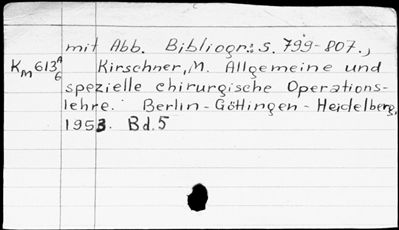 mit Abb. Bibliogr.: S. 799-807.,
KM 613 A 6 Kirschner, M. Allgemeine und
spezielle chirurgische Operations-
lehre. Berlin-Göttingen-Heidelberg,
1953. Bd.5